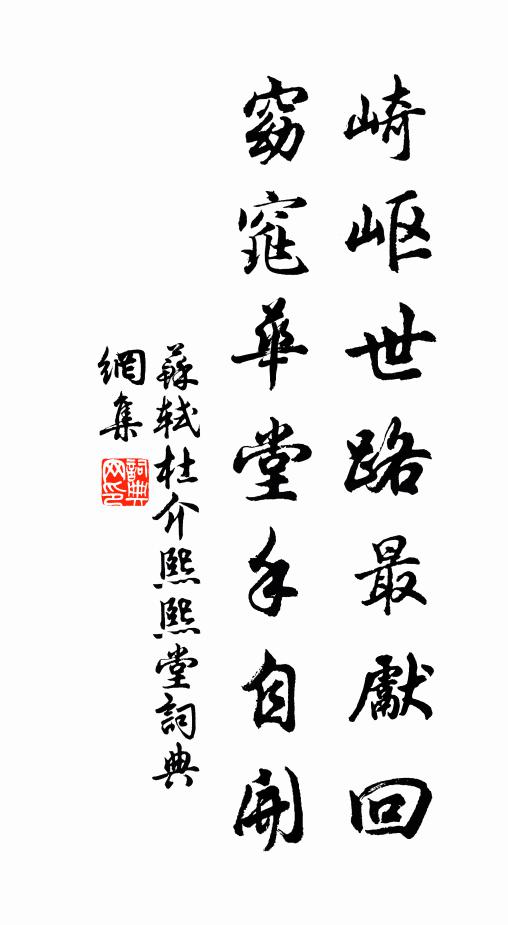 崎岖世路最獻回
窈窕華堂手自開
蘇軾杜介熙熙堂詞典
網集
詞典
网印